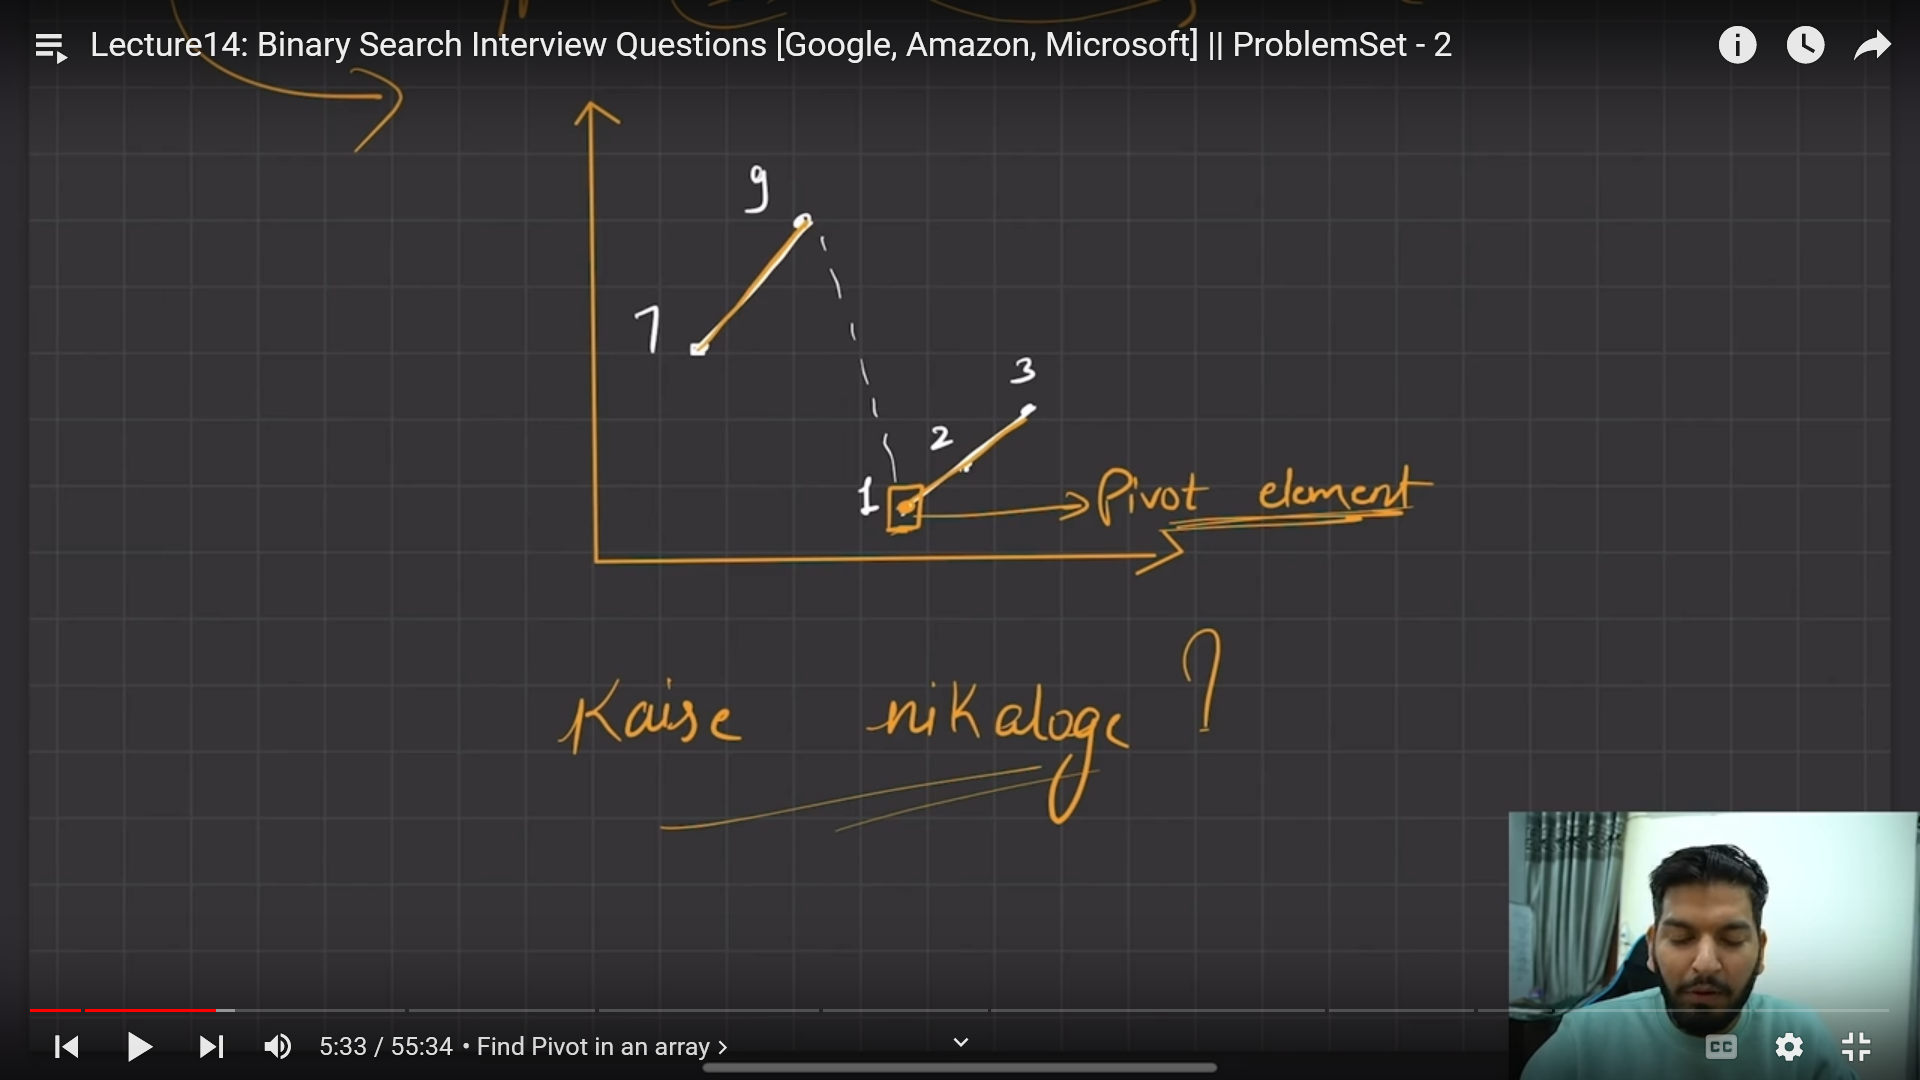 Lecture14: Binary Search Interview Questions [Google, Amazon, Microsoft] || ProblemSet - 2
9
7
3
2
1
Pivot element
Kaise nikaloge ?
5:33 / 55:34 • Find Pivot in an array ›
CC